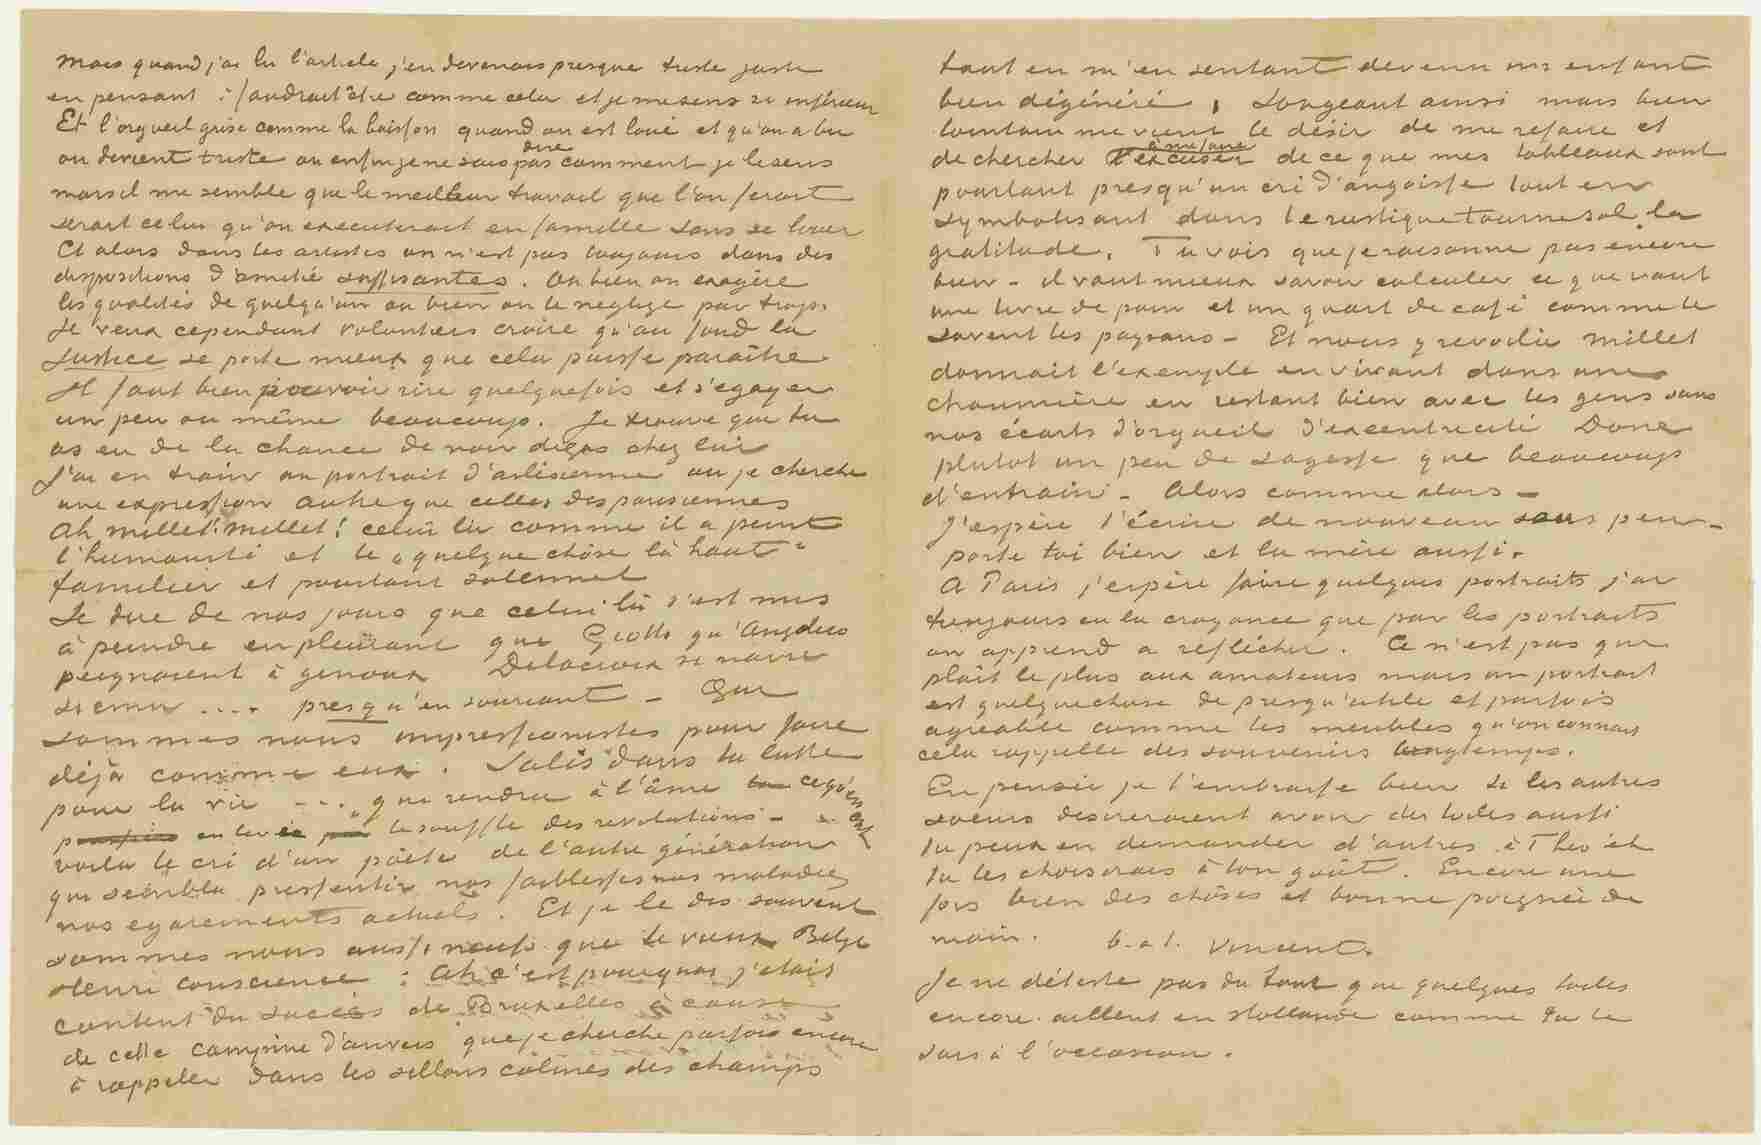 Mais quand j'ai lu l'article j'en devenais presque triste juste
en pensant : faudrait être comme cela et je me sens si inférieur
Et l'orgueil grise comme la boisson quand on est loué et qu'on a bu
on devient triste ou enfin je ne sais pas dire comment je le sens
mais il me semble que le meilleur travail que l'on ferait
serait celui qu'on executerait en famille sans se louer
Et alors dans les artistes on n'est pas toujours dans des
dispositions d'amitié suffisantes. Ou bien on exagère
les qualités de quelqu'un ou bien on le neglige par trop.
Je veux cependant volontiers croire qu'au fond la
justice se porte mieux que cela puisse paraître
Il faut bien pouvoir rire quelquefois et s'egayer
un peu ou même beaucoup. Je trouve que tu
as eu de la chance de voir degas chez lui
J'ai en train un portrait d'arlesienne où je cherche
une expression autre que celles des parisiennes
Ah Millet! Millet! celui là comme il a peint
l'humanité et le „quelque chôse là haut"
familier et pourtant solennel
Se dire de nos jours que celui là s'est mis
à peindre en pleurant que Giotto qu'Angelico
peignaient à genoux Delacroix si navré
si emu .... presqu'en souriant – Que
sommes nous impressionistes pour faire
déjà comme eux. Salis dans la lutte
pour la vie ... „que rendra à l'âme ce qu'en ont
enlevée le souffle des revolutions –
voila le cri d'un pöete de l'autre génération
qui sembla pressentir nos faiblesses nos maladies
nos egarements actuels. Et je le dis souvent
sommes nous aussi neufs que le vieux Belge
Henri Conscience : Ah c'est pourquoi j'etais
content du succès de Bruxelles à cause
de cette campine d'anvers que je cherche parfois encore
à rappeler dans les sillons câlmes des champs
tout en m'en sentant devenu un enfant
bien dégénéré, Songeant ainsi mais bien
lointain me vient le désir de me refaire et
de chercher à me faire excuser de ce que mes tableaux sont
pourtant presqu'un cri d'angoisse tout en
symbolisant dans le rustique tournesol la
gratitude. Tu vois que je raisonne pas encore
bien – il vaut mieux savoir calculer ce que vaut
une livre de pain et un quart de café comme le
savent les paysans – Et nous y revoilà Millet
donnait l'exemple en vivant dans une
chaumière en restant bien avec les gens sans
nos écarts d'orgueil d'excentricité Donc
plutot un peu de sagesse que beaucoup
d'entrain – Alors comme alors –
J'espère t'écrire de nouveau sous peu –
porte toi bien et la mère aussi.
A Paris j'espère faire quelques portraits j'ai
toujours eu la croyance que par les portraits
on apprend à réfléchir. Ce n'est pas que
plaît le plus aux amateurs mais un portrait
est quelque chose de presqu'utile et parfois
agréable comme les meubles qu'on connais
cela rappelle des souvenirs longtemps.
En pensée je t'embrasse bien si les autres
soeurs desireraient avoir des toiles aussi
tu peux en demander d'autres à Theo et
tu les choisirais à ton goût. Encore une
fois bien des chôses et bonne poignée de
main. b. à t. Vincent.
Je ne déteste pas du tout que quelques toiles
encore aillent en Hollande comme tu le
sais à l'occasion.